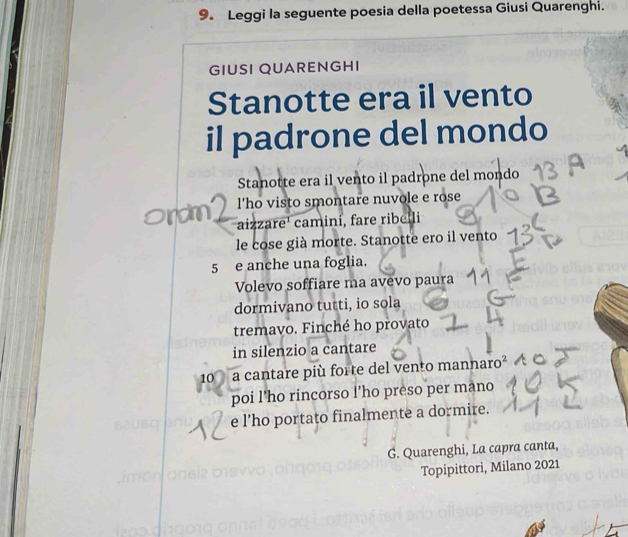 9. Leggi la seguente poesia della poetessa Giusi Quarenghi.
GIUSI QUARENGHI
Stanotte era il vento
il padrone del mondo
Stanotte era il vento il padrone del mondo 13 A
l'ho visto smontare nuvole e rose 10 B
aizzare¹ camini, fare ribelli 9 C
le cose già morte. Stanotte ero il vento 13 D
5 e anche una foglia. 6 E
Volevo soffiare ma avevo paura 11 F
dormivano tutti, io sola 6 G
tremavo. Finché ho provato 7 H
in silenzio a cantare 6 I
10 a cantare più forte del vento mannaro² 10 J
poi l'ho rincorso l'ho preso per mano 10 K
12 e l'ho portato finalmente a dormire. 11 L
G. Quarenghi, La capra canta,
Topipittori, Milano 2021